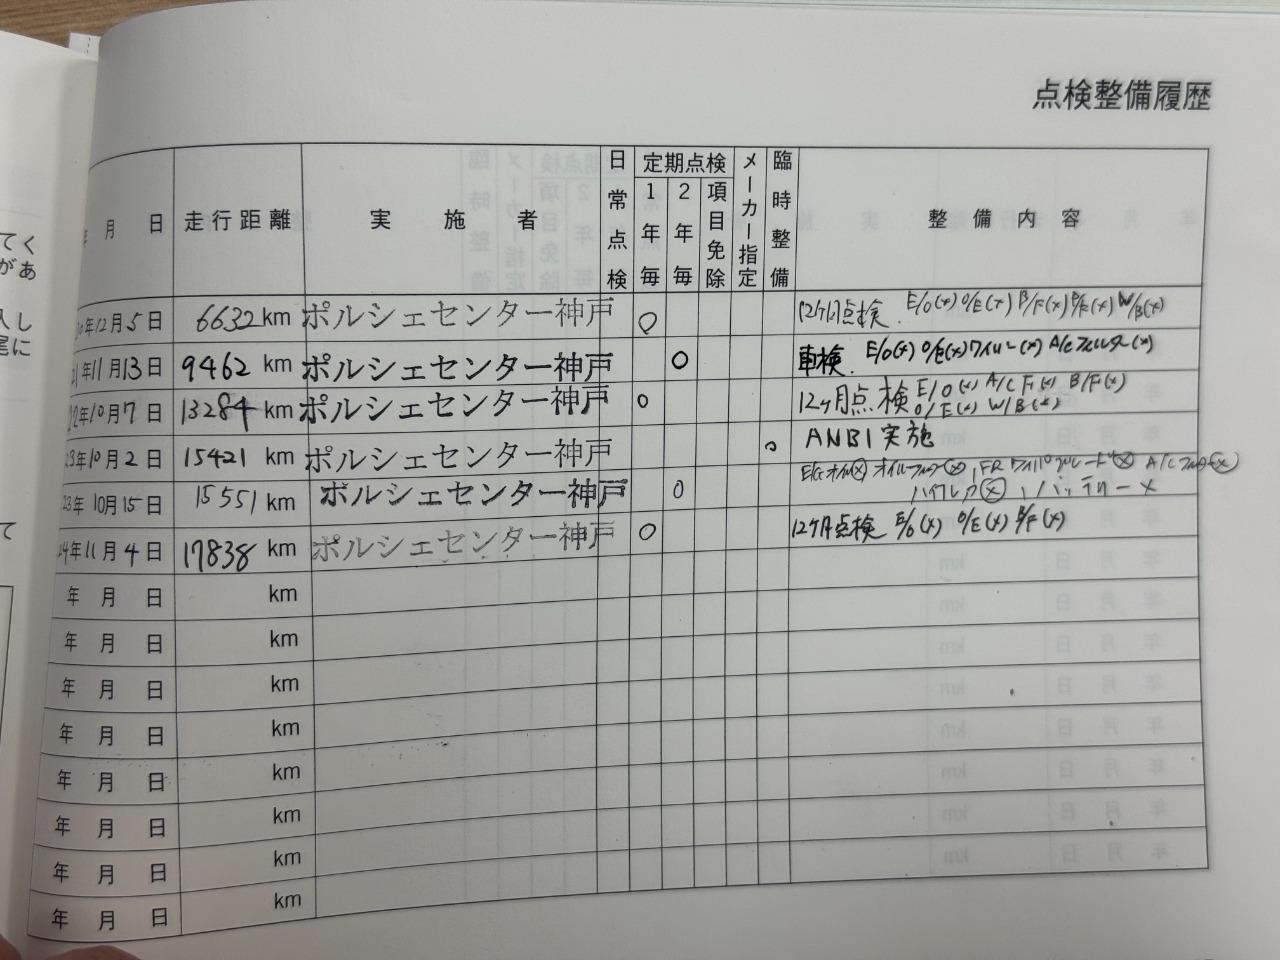 点検整備履歴
年 月 日 走行距離 実施者 日常点検 定期点検 1年毎 2年毎 項目免除 メーカー指定 臨時整備 整備内容
年12月5日 6632km ポルシェセンター神戸 ○ 12ヶ月点検 E/O(x) O/E(x) B/F(x) W/B(x)
21年11月13日 9462 km ポルシェセンター神戸 ○ 車検 E/O(x) O/E(x) ワイパー(x) A/Cフィルター(x)
22年10月7日 13284km ポルシェセンター神戸 ○ 12ヶ月点検 E/O(x) A/C F(x) B/F(x)
O/E(x) W/B(x)
23年10月2日 15421 km ポルシェセンター神戸 ○ ANB1実施
23年10月15日 15551 km ポルシェセンター神戸 ○ オイルフィルター(x), FRワイパーブレード(x) A/Cフィルター(x)
, バッテリー x
24年11月4日 17838 km ポルシェセンター神戸 ○ 12ヶ月点検 E/O(x) O/E(x) B/F(x)
年 月 日 km
年 月 日 km
年 月 日 km
年 月 日 km
年 月 日 km
年 月 日 km
年 月 日 km
年 月 日 km
てく
があ
入し
尾に
て